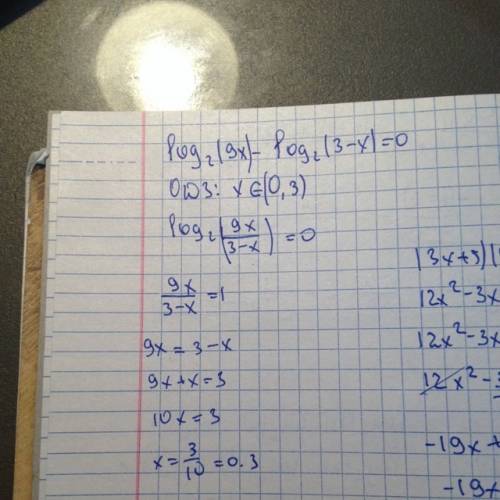 log₂(9x) - log₂(3-x)=0
ОДЗ: x∈(0,3)
log₂(9x/(3-x)) =0
9x/(3-x) =1
9x = 3-x
9x+x=3
10x=3
x= 3/10 =0.3
(3x+5)(
12x²-3x
12x²-3x
12x²-3
-19x+
-19x